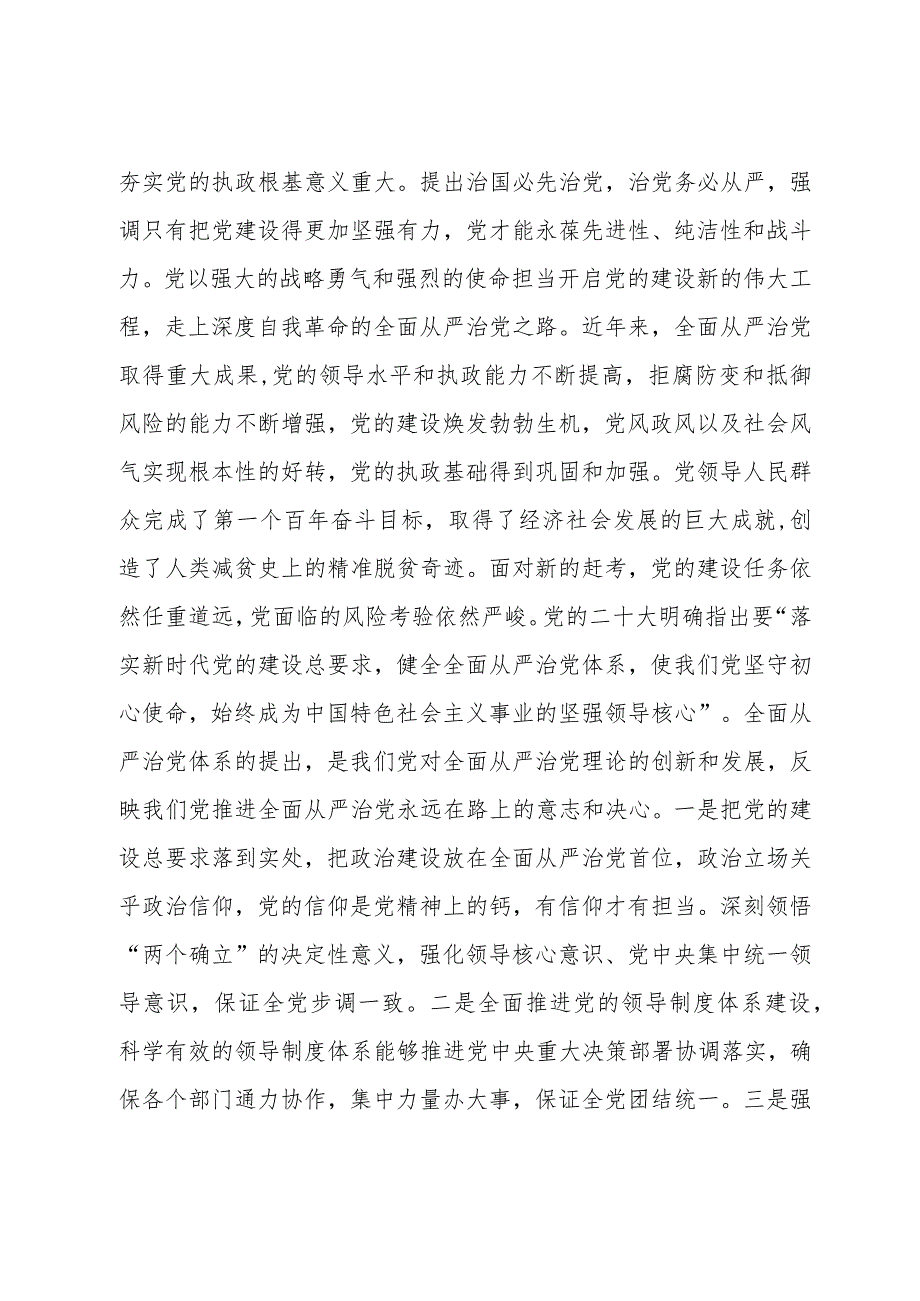 夯实党的执政根基意义重大。提出治国必先治党，治党务必从严，强
调只有把党建设得更加坚强有力，党才能永葆先进性、纯洁性和战斗
力。党以强大的战略勇气和强烈的使命担当开启党的建设新的伟大工
程，走上深度自我革命的全面从严治党之路。近年来，全面从严治党
取得重大成果,党的领导水平和执政能力不断提高，拒腐防变和抵御
风险的能力不断增强，党的建设焕发勃勃生机，党风政风以及社会风
气实现根本性的好转，党的执政基础得到巩固和加强。党领导人民群
众完成了第一个百年奋斗目标，取得了经济社会发展的巨大成就,创
造了人类减贫史上的精准脱贫奇迹。面对新的赶考，党的建设任务依
然任重道远,党面临的风险考验依然严峻。党的二十大明确指出要“落
实新时代党的建设总要求，健全全面从严治党体系，使我们党坚守初
心使命，始终成为中国特色社会主义事业的坚强领导核心”。全面从
严治党体系的提出，是我们党对全面从严治党理论的创新和发展，反
映我们党推进全面从严治党永远在路上的意志和决心。一是把党的建
设总要求落到实处，把政治建设放在全面从严治党首位，政治立场关
乎政治信仰，党的信仰是党精神上的钙，有信仰才有担当。深刻领悟
“两个确立”的决定性意义，强化领导核心意识、党中央集中统一领
导意识，保证全党步调一致。二是全面推进党的领导制度体系建设，
科学有效的领导制度体系能够推进党中央重大决策部署协调落实，确
保各个部门通力协作，集中力量办大事，保证全党团结统一。三是强